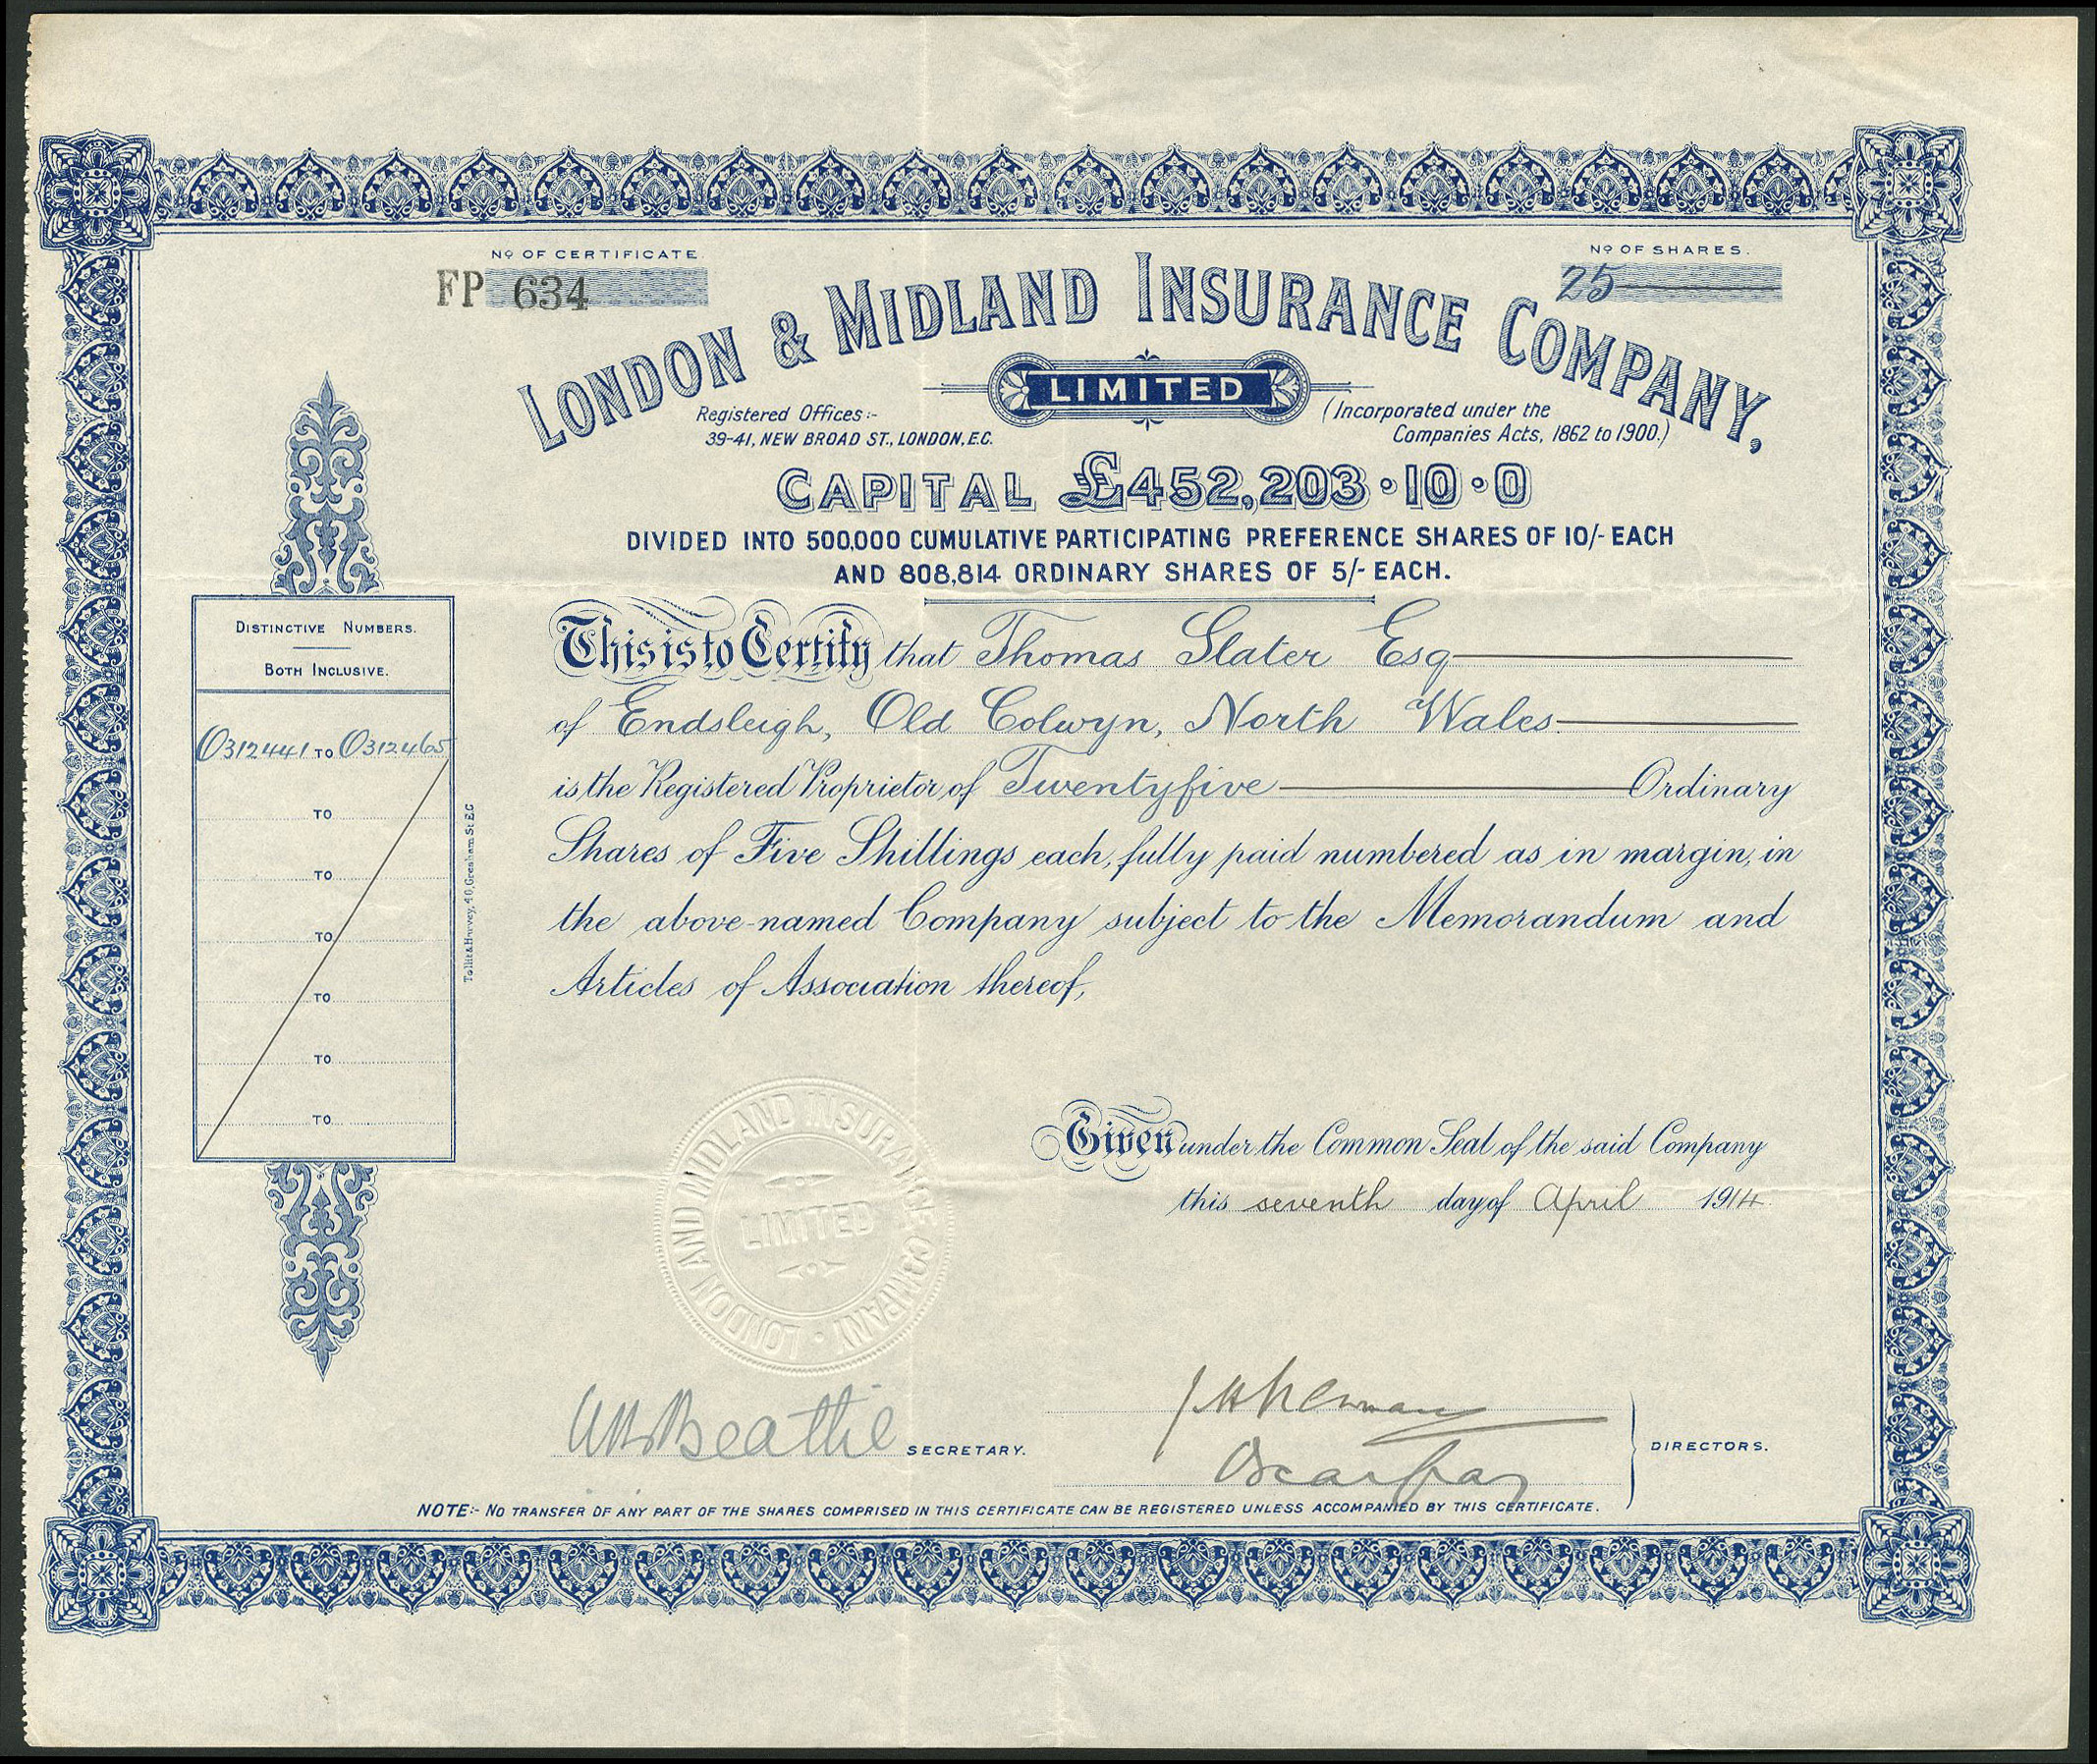 Nº OF CERTIFICATE.
FP 634
Nº OF SHARES.
25
LONDON & MIDLAND INSURANCE COMPANY,
LIMITED
Registered Offices:-
39-41, NEW BROAD ST., LONDON, E.C.
(Incorporated under the
Companies Acts, 1862 to 1900.)
CAPITAL £452,203·10·0
DIVIDED INTO 500,000 CUMULATIVE PARTICIPATING PREFERENCE SHARES OF 10/- EACH
AND 808,814 ORDINARY SHARES OF 5/- EACH.
DISTINCTIVE NUMBERS.
BOTH INCLUSIVE.
0312441 TO 0312465
TO
TO
TO
TO
TO
TO
Tollit & Harvey, 40, Gresham St. E.C
This is to Certify that Thomas Slater Esq
of Endsleigh, Old Colwyn, North Wales
is the Registered Proprietor of Twentyfive Ordinary
Shares of Five Shillings each, fully paid numbered as in margin, in
the above-named Company subject to the Memorandum and
Articles of Association thereof,
Given under the Common Seal of the said Company
this seventh day of April 1914
LONDON AND MIDLAND INSURANCE COMPANY ·
LIMITED
Beattie SECRETARY.
DIRECTORS.
NOTE:- NO TRANSFER OF ANY PART OF THE SHARES COMPRISED IN THIS CERTIFICATE CAN BE REGISTERED UNLESS ACCOMPANIED BY THIS CERTIFICATE.